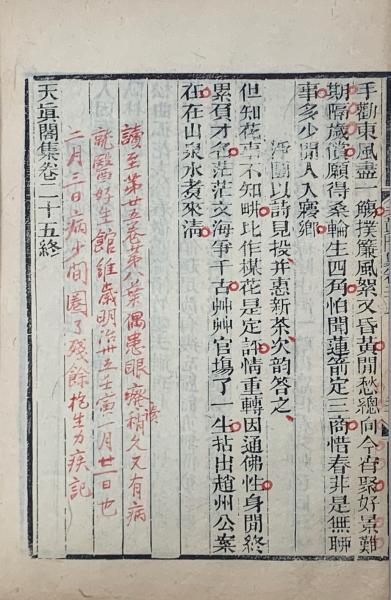 手勸東風盡一觴撲簾風絮又昏黃閒愁總向今宵聚好景難
期隔歲償願得桑輪生四角怕聞蓮箭定三商惜春非是無聊
事多少閒人入鄉
以詩見投并惠新茶次韻答之
但知花事不知畊比作楳花是定評情重轉因通佛性身閒終
累負才名茫茫文海爭千古艸艸官場了一生拈出趙州公案
在在山泉水煮來清
讀至第廿五卷第八葉偶患眼療讀稍久又有病
就醫好生館維歲明治卅五壬寅一月廿一日也
二月三日病少間圈了殘餘抱生力疾記
天眞閣集卷二十五終